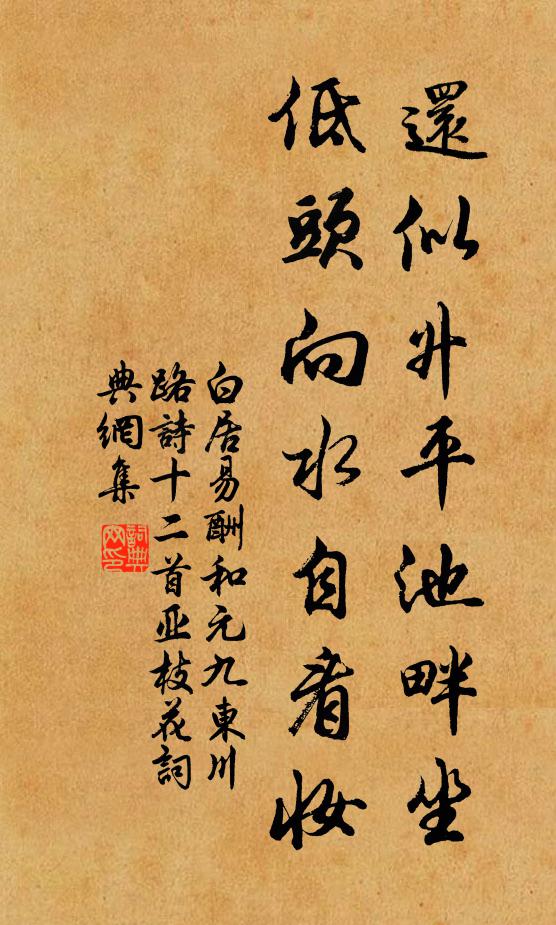 還似升平池畔坐
低頭向水自看妝
白居易酬和元九東川
路詩十二首亚枝花詞
典網集
詞典网印